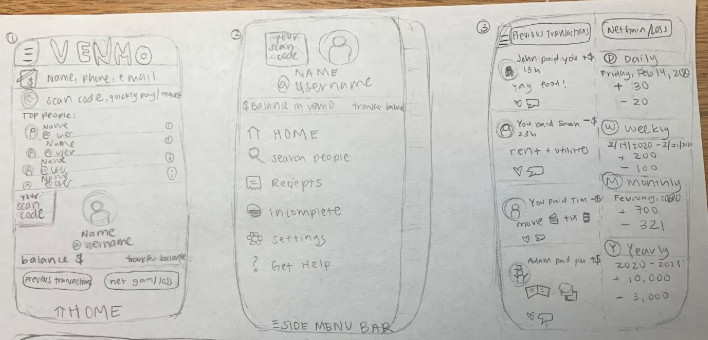 ①
VENMO
Name, phone, email
scan code, quickly pay/request
TOP people:
Name
@ user
Name
@ user
Name
@ user
Name
@ user
your
scan
code
Name
@ username
balance $
transfer balance
previous transactions
net gain/loss
⇑ HOME
②
your
scan
code
NAME
@ username
$ Balance in venmo
transfer balance
HOME
search people
Reciepts
incomplete
settings
? Get Help
SIDE MENU BAR
③
Previous Transactions
Net Gain/Loss
John paid you +$
13h
yay food!
You paid Sarah -$
23h
rent + utilites
You paid Tim -$
movie
tix
Adam paid you +$
D Daily
Friday, Feb 14, 2020
+ 30
- 20
W Weekly
2/14/2020 - 2/21/2020
+ 200
- 100
M Monthly
2020
+ 700
- 321
Y Yearly
2020 - 2021
+ 10,000
- 3,000